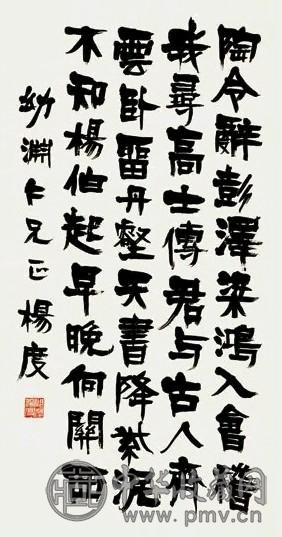 陶令辭彭澤梁鴻入會稽
我尋高士傳君与古人齊
雲卧留丹壑天書降紫泥
不知楊伯起早晚向關西
幼淵仁兄正楊度
中华收藏网
www.pmv.cn